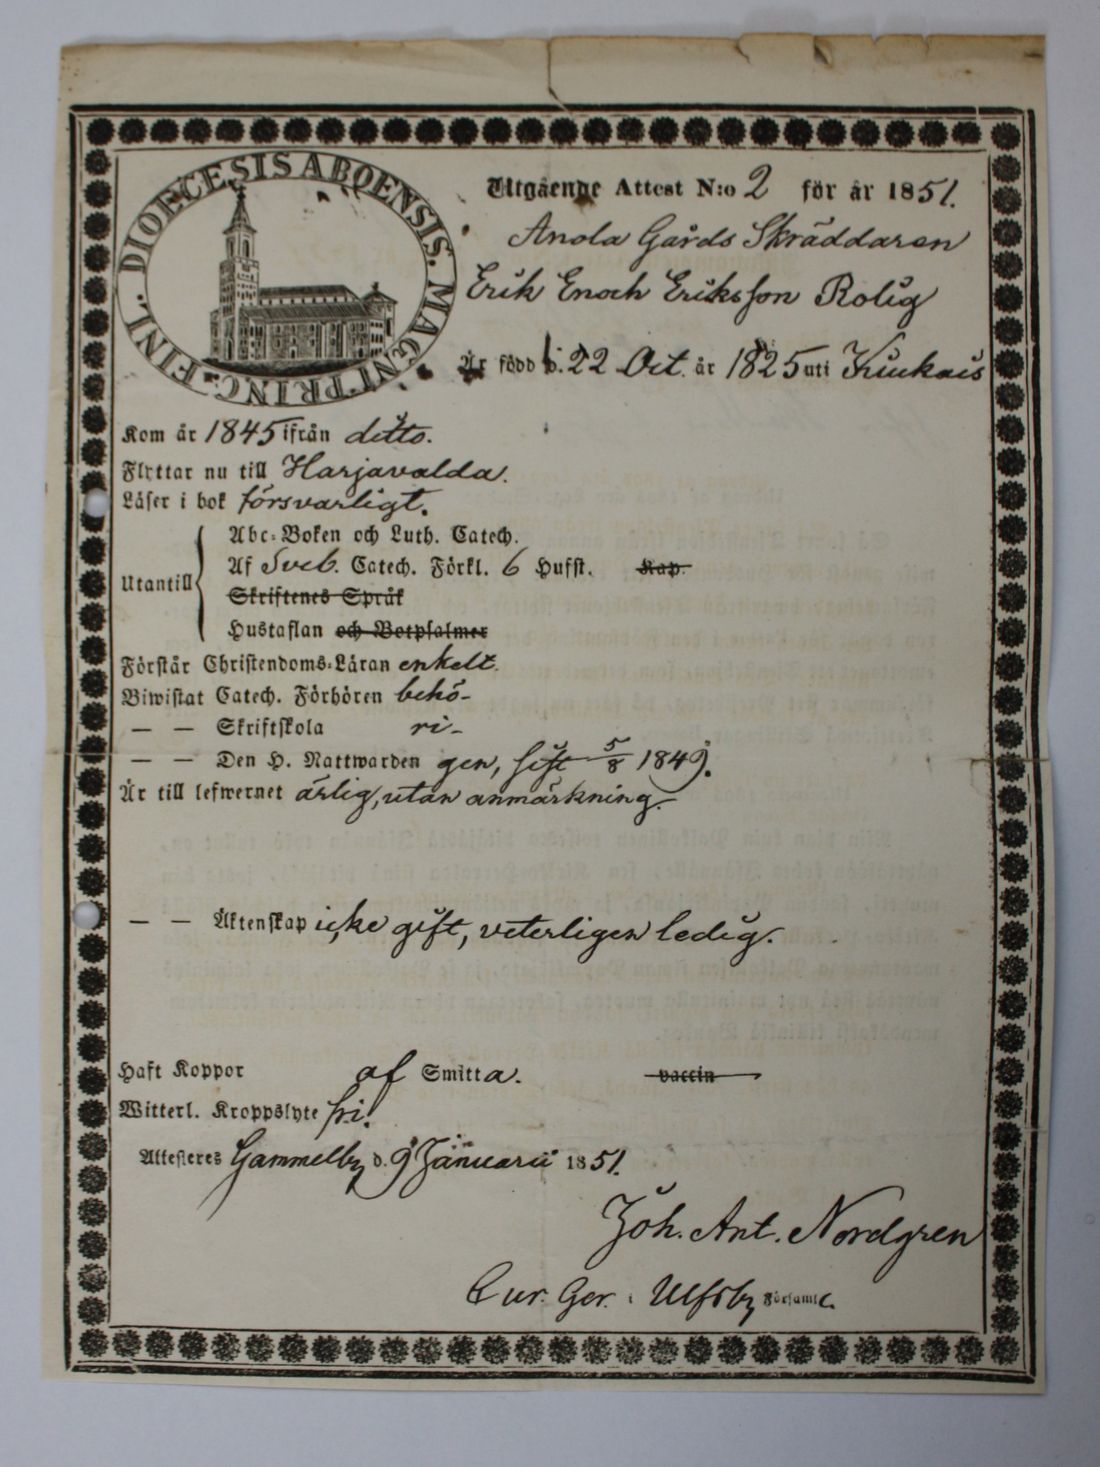 DIOECESIS ABOENSIS. MAGNI PRINC. FINL.
Utgående Attest N:o 2 för år 1851.
Anola Gårds Skräddaren
Erik Enoch Eriksson Rolig
Är född d. 22 Oct. år 1825 uti Kiukais
Kom år 1845 ifrån ditto.
Flyttar nu till Harjavalda.
Läser i bok försvarligt.
Utantill
Abc-Boken och Luth. Catech.
Af Sveb. Catech. Förkl. 6 Hufst. Kap.
Skriftenes Språk
Hustaflan och Botpsalmer
Förstår Christendoms-Läran enkelt.
Biwistat Catech. Förhören behö-
— — Skriftskola ri-
— — Den H. Nattwarden gen, sist 5/8 1849.
Är till lefwernet ärlig, utan anmärkning.
— — Äktenskap icke gift, veterligen ledig.
Haft Koppor af Smitta. vaccin
Witterl. Kroppslyte fri.
Attesteres Gammelby d. 9 Januarii 1851.
Joh. Ant. Nordgren
Cur. Ger. i Ulfsby Församl.